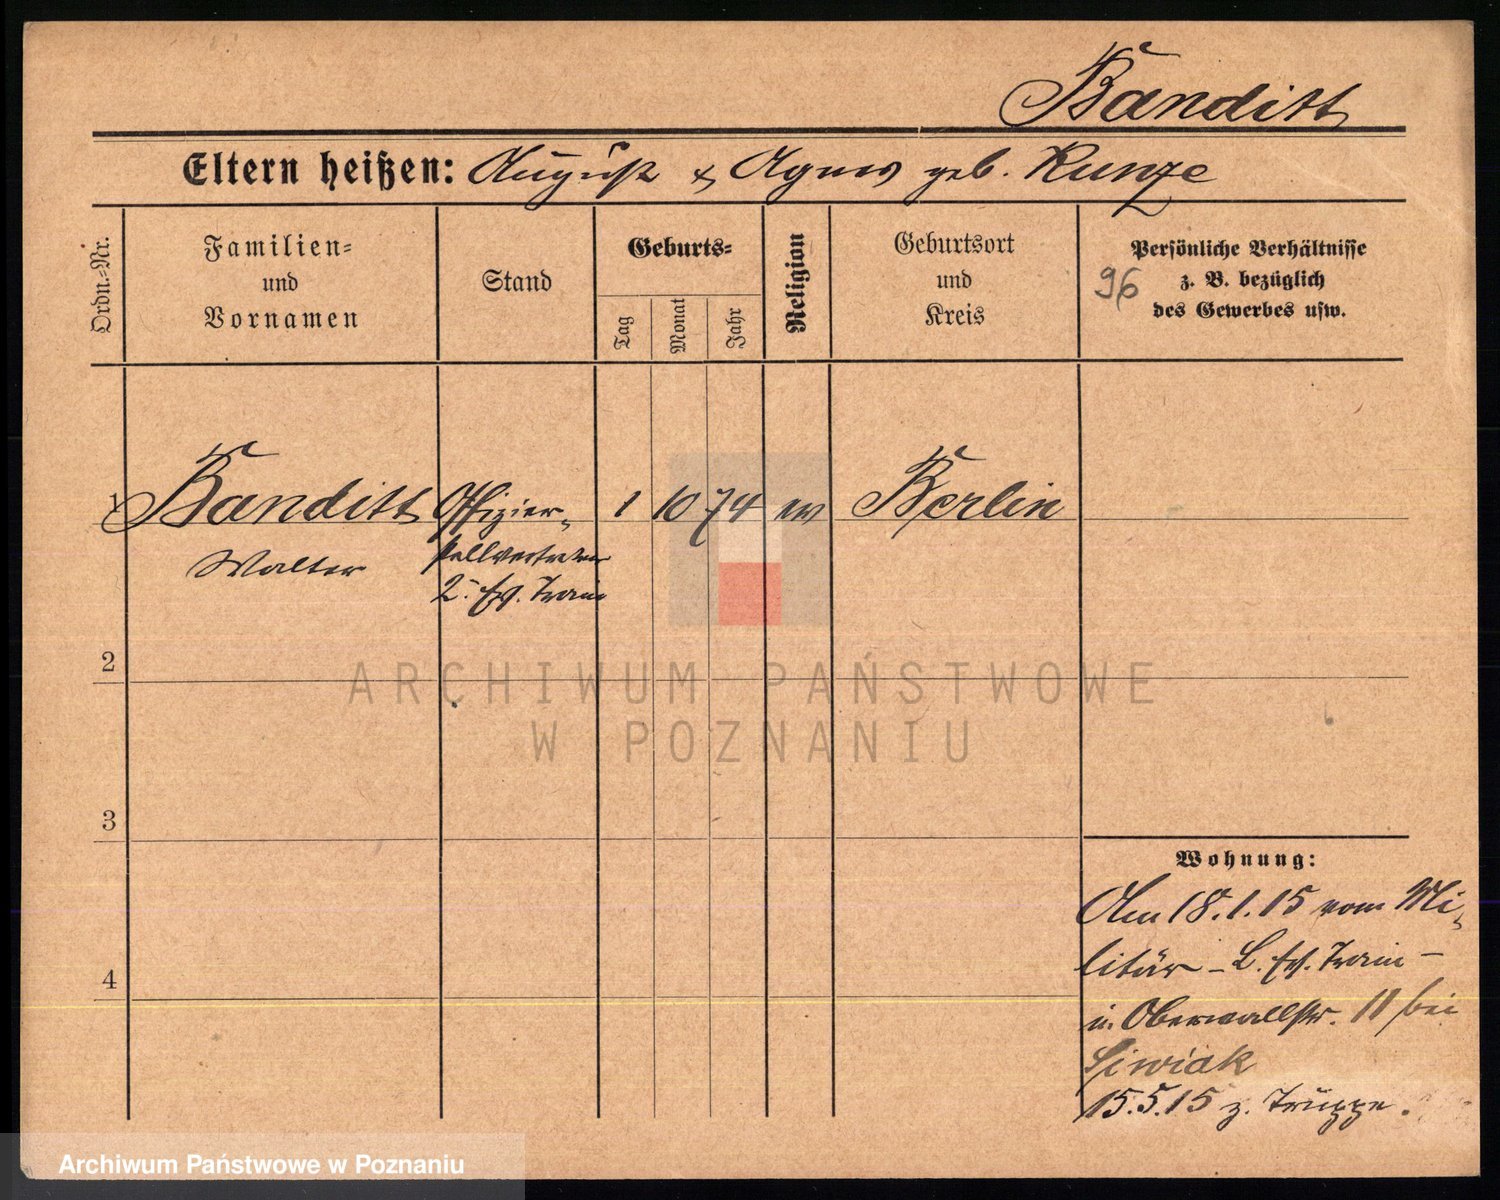 Banditt
Eltern heißen: August & Agnes geb. Kunze
Ordn.-Nr.
Familien-
und
Vornamen
Stand
Geburts-
Tag
Monat
Jahr
Religion
Geburtsort
und
Kreis
Persönliche Verhältnisse
z. B. bezüglich
des Gewerbes usw.
96
1 Banditt Offizier- 1 10 74 ev Berlin
Walter stellvertreter
Train
2
3
4
Wohnung:
Am 18.1.15 vom Mi-
litär - Train -
n. Oberwallstr. 11 bei
Siwiak
15.5.15 z. Truppe.
ARCHIWUM PAŃSTWOWE
W POZNANIU
Archiwum Państwowe w Poznaniu